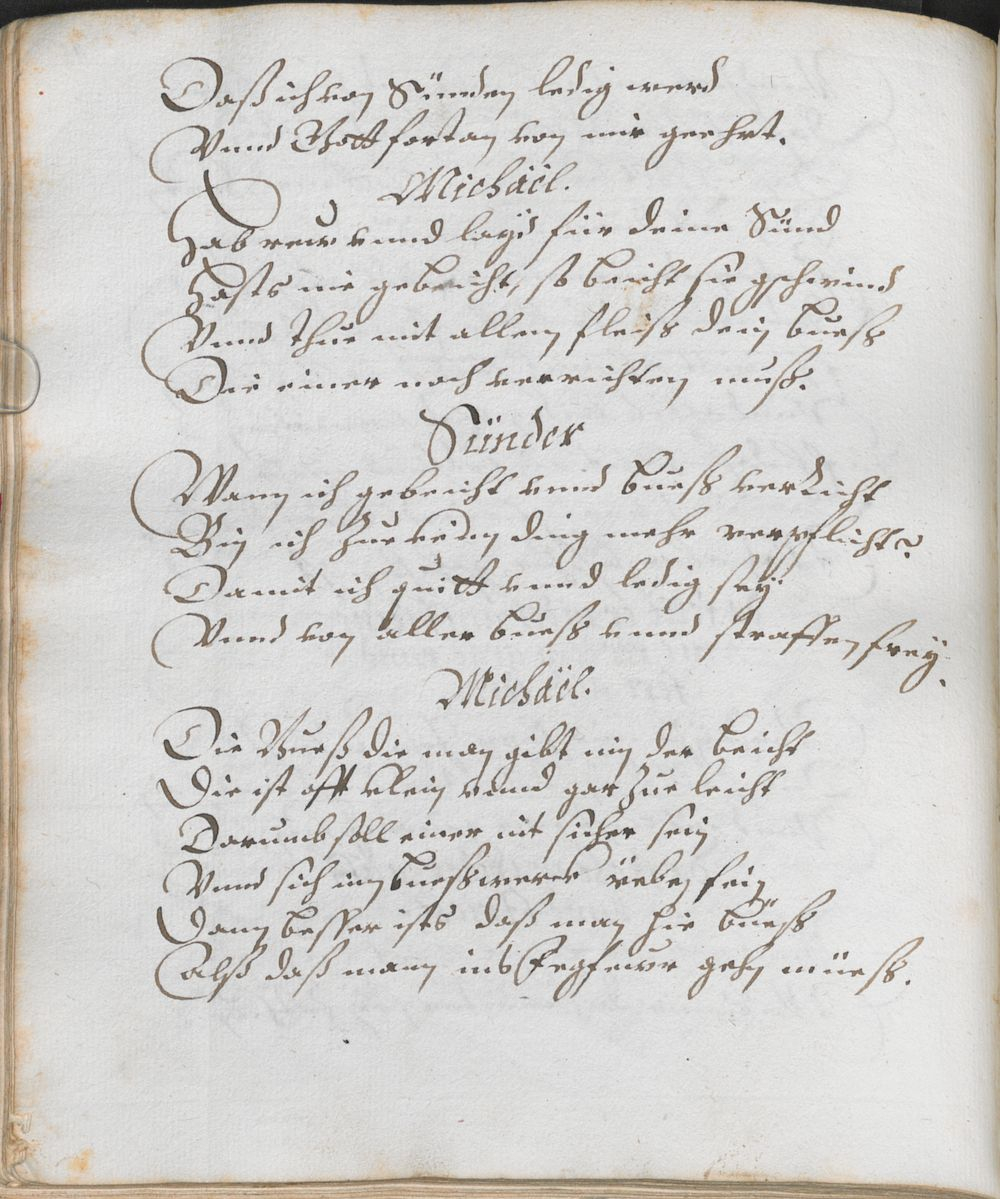 Daß ich von Sünden ledig werd
Vnnd Gott fortan von mir geehrt.
Michaël.
Hab rew vnnd layd für deine Sünd
Hasts nie gebeicht, so beicht sie gschwind
Vnnd thue mit allem fleiß dein bueß
Die einer noch verrichten muß.
Sünder
Wann ich gebeicht vnnd bueß verricht
Bin ich zue ding mehr verpflicht?
Damit ich quitt vnnd ledig sey
Vnnd von aller bueß vnnd straffen frey.
Michaël.
Die Bueß die man gibt inn der beicht
Die ist offt klein vnnd gar zue leicht
Darumb soll einer nit sicher sein
Vnnd sich inn bueßwerck üeben fein
Dann besser ists daß man hie büeß
Alß daß mann ins Fegfewr gehn müeß.